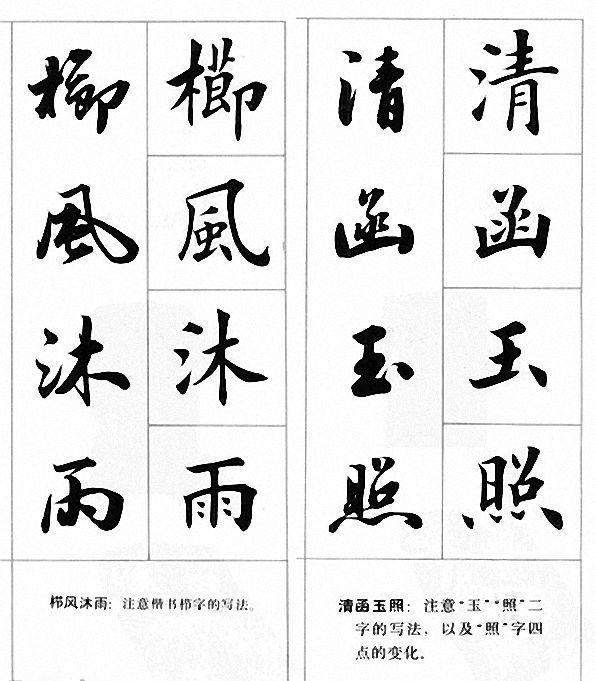 櫛風沐雨
櫛風沐雨
栉风沐雨：注意楷书栉字的写法。
清函玉照
清函玉照
清函玉照：注意“玉”“照”二
字的写法，以及“照”字四
点的变化。